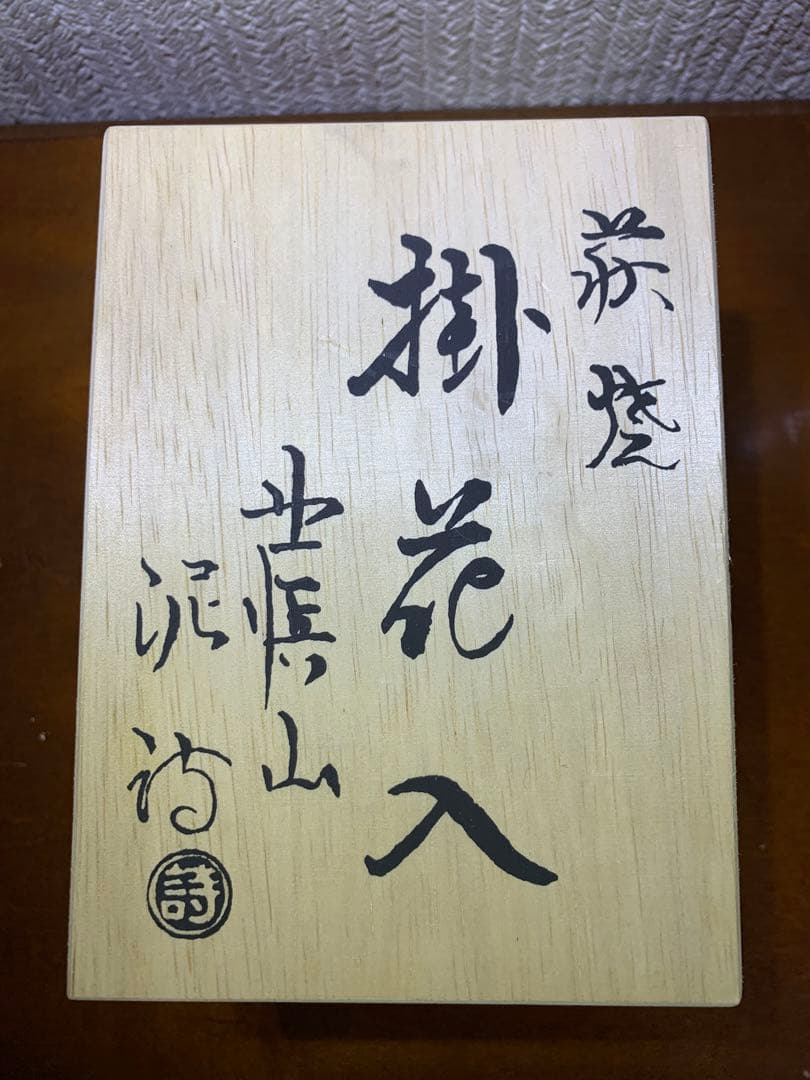 萩焼
掛花入
世山
泥詩
詩